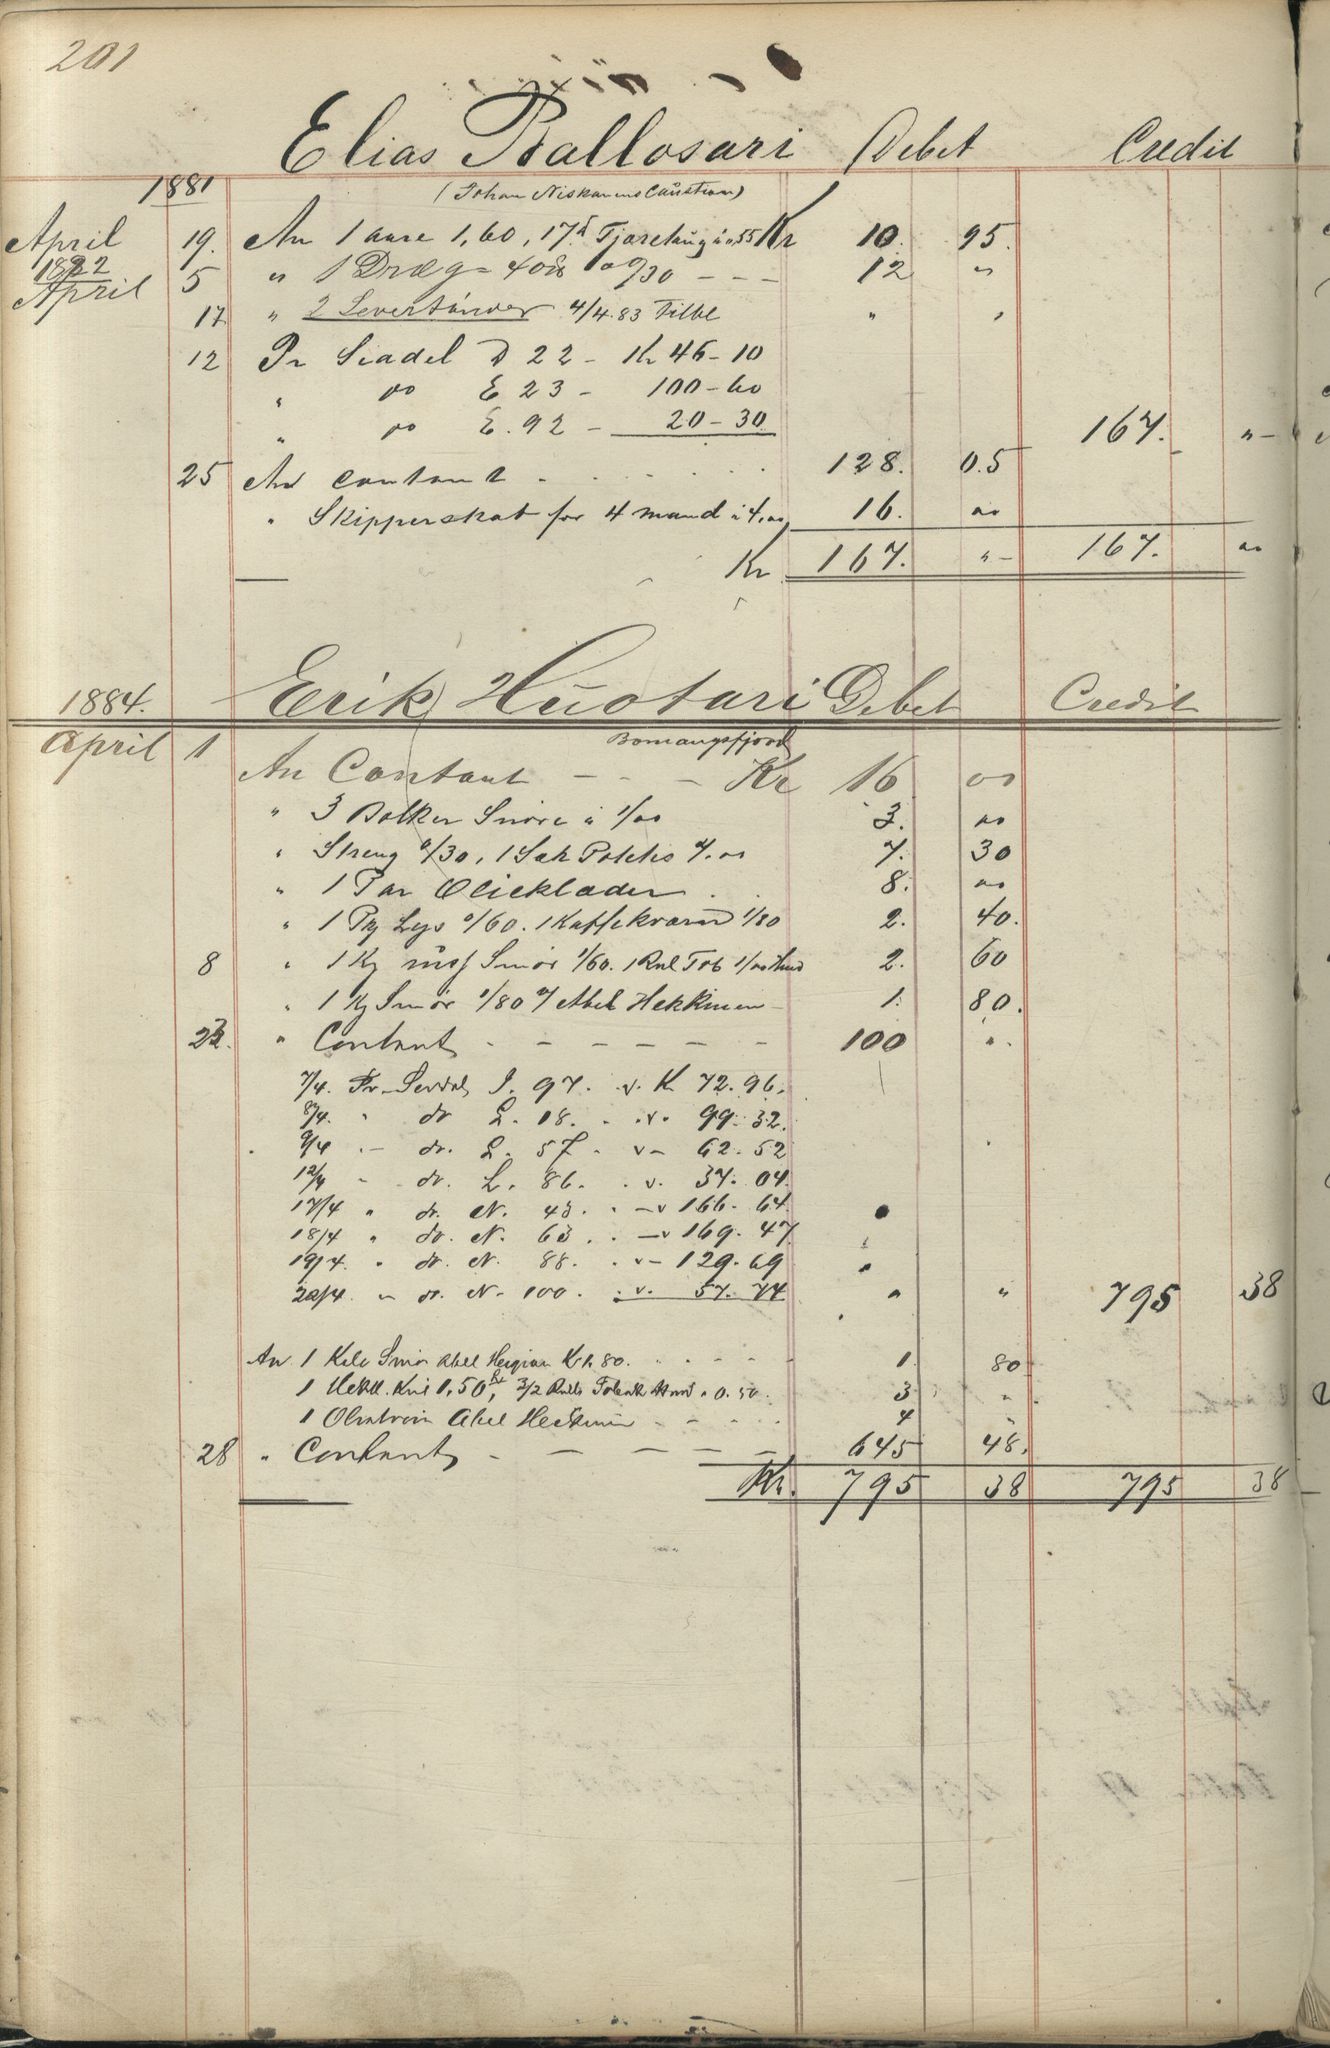 201
Elias Pallosari Debet Credit
1881 (Johan Niskanens Caution)
April 19. An 1 aare 1,60, 17 Tjæretaug à " 55 Kr 10. 95.
1882
April 5 " 1 Dræg = 40 à 0/30 - - - 12 "
17 " 2 Levertünder 4/4.83 Tilbl " "
12 Pr Siadel D 22 - Kr 46-10
" do E 23 - 100-60
" do E. 92 - 20-30 167. "-
25 An contant - . . . . 128. 05
" Skipperskat for 4 mand à 4,00 16. 00
Kr 167. "- 167. 00
1884. Erik Huotari Debet Credit
April 1 Bomangsfjord
An Contant - - - Kr 16 00
" 3 Bolker Snøre à 1/00 3. 00
" Streng 0/30, 1 Sæk 7.00 7. 30
" 1 Par Olieklæder . . 8. 00
" 1 Pk Lys 0/60. 1 Kaffekværn 1/80 2. 40.
8 " 1 Kg Smör 1/60. 1 Rul Tob 1/00 2. 60
" 1 Kg Smör 1/80 Abel Hekkinen - 1. 80.
22. " Contant - - - - - - 100 ".
7/4. Pr. Seddel I. 97. . v. Kr 72. 96.
8/4. " do L. 18. . . v. 99. 32.
9/4 . - do. L. 57 . v - 62. 52
12/4 " do. L. 86. . v. 37. 04.
17/4 " do. N. 43. . - v 166. 64.
18/4 " do. N. 63 . . - v 169. 47
19/4. " do. N. 88. . v - 129. 69
20/4. " do. N. 100. . v. 57. 74 " " 795 38
An 1 Kilo Smör Abel Kr 1. 80. . - - - - 1. 80
1 Hektl. 1,50, 3/2 Rulle Tobak à 0.50. 3 "
1 Abel Heckinen - - . . 4 "
28 " Contant - - - - - 645 48.
Kr. 795 38 795 38